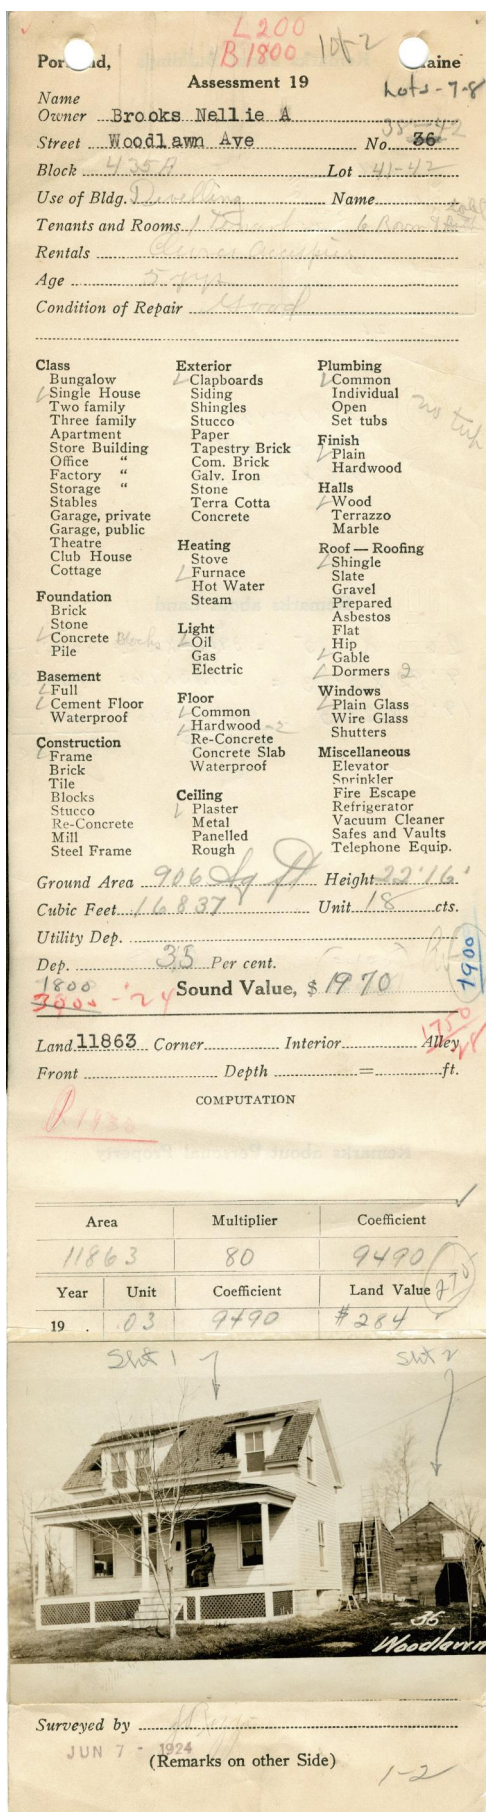 L200
B1800 1 of 2
Portland, Maine
Assessment 19
Lots-7-8
Name
Owner Brooks Nellie A
38-42
Street Woodlawn Ave No. 36
Block 435A Lot 41-42
Use of Bldg. Dwelling Name
Tenants and Rooms 1 tenant 6 Room &
Rentals Owner occupies
Age 5 yrs
Condition of Repair Good
Class
Bungalow
Single House
Two family
Three family
Apartment
Store Building
Office "
Factory "
Storage "
Stables
Garage, private
Garage, public
Theatre
Club House
Cottage
Foundation
Brick
Stone
Concrete Blocks
Pile
Basement
Full
Cement Floor
Waterproof
Construction
Frame
Brick
Tile
Blocks
Stucco
Re-Concrete
Mill
Steel Frame
Exterior
Clapboards
Siding
Shingles
Stucco
Paper
Tapestry Brick
Com. Brick
Galv. Iron
Stone
Terra Cotta
Concrete
Heating
Stove
Furnace
Hot Water
Steam
Light
Oil
Gas
Electric
Floor
Common
Hardwood -2
Re-Concrete
Concrete Slab
Waterproof
Ceiling
Plaster
Metal
Panelled
Rough
Plumbing
Common
Individual
Open
Set tubs
no tub
Finish
Plain
Hardwood
Halls
Wood
Terrazzo
Marble
Roof — Roofing
Shingle
Slate
Gravel
Prepared
Asbestos
Flat
Hip
Gable
Dormers 2
Windows
Plain Glass
Wire Glass
Shutters
Miscellaneous
Elevator
Sprinkler
Fire Escape
Refrigerator
Vacuum Cleaner
Safes and Vaults
Telephone Equip.
Ground Area 906 Sq ft Height 22'16'
Cubic Feet 16837 Unit 18 cts.
Utility Dep.
Dep. 35 Per cent.
1900
1800
3900 - '24 Sound Value, $ 1970
1750
28
Land 11863 Corner Interior Alley
Front Depth = ft.
COMPUTATION
Area Multiplier Coefficient
11863 80 9490
Year Unit Coefficient Land Value 270
19 . .03 9490 $284
Sht 1 Sht 2
36
Woodlawn
Surveyed by
JUN 7 - 1924
(Remarks on other Side)
1-2